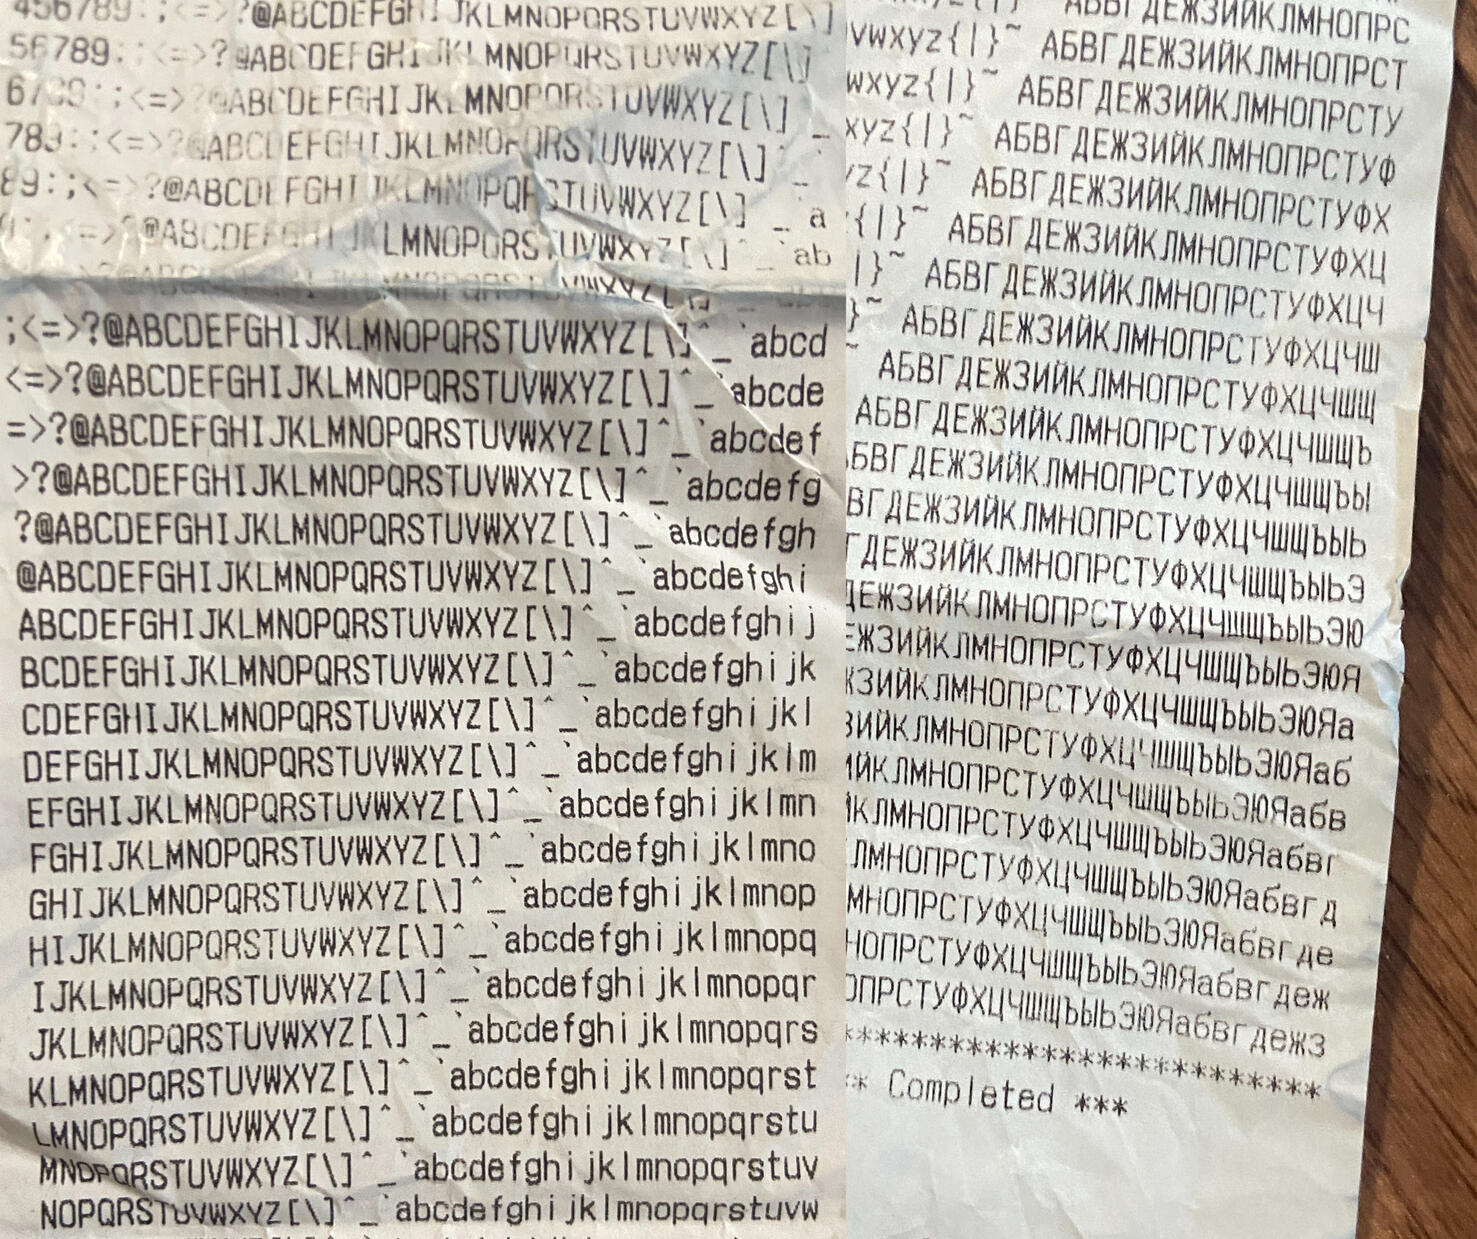 456789:;<=>?@ABCDEFGHIJKLMNOPQRSTUVWXYZ[\]
56789:;<=>?@ABCDEFGHIJKLMNOPQRSTUVWXYZ[\]
6789:;<=>?@ABCDEFGHIJKLMNOPQRSTUVWXYZ[\]^_
789:;<=>?@ABCDEFGHIJKLMNOPQRSTUVWXYZ[\]^_
89:;<=>?@ABCDEFGHIJKLMNOPQRSTUVWXYZ[\]^_`a
9:;<=>?@ABCDEFGHIJKLMNOPQRSTUVWXYZ[\]^_`ab
;<=>?@ABCDEFGHIJKLMNOPQRSTUVWXYZ[\]^_`abcd
<=>?@ABCDEFGHIJKLMNOPQRSTUVWXYZ[\]^_`abcde
=>?@ABCDEFGHIJKLMNOPQRSTUVWXYZ[\]^_`abcdef
>?@ABCDEFGHIJKLMNOPQRSTUVWXYZ[\]^_`abcdefg
?@ABCDEFGHIJKLMNOPQRSTUVWXYZ[\]^_`abcdefgh
@ABCDEFGHIJKLMNOPQRSTUVWXYZ[\]^_`abcdefghi
ABCDEFGHIJKLMNOPQRSTUVWXYZ[\]^_`abcdefghij
BCDEFGHIJKLMNOPQRSTUVWXYZ[\]^_`abcdefghijk
CDEFGHIJKLMNOPQRSTUVWXYZ[\]^_`abcdefghijkl
DEFGHIJKLMNOPQRSTUVWXYZ[\]^_`abcdefghijklm
EFGHIJKLMNOPQRSTUVWXYZ[\]^_`abcdefghijklmn
FGHIJKLMNOPQRSTUVWXYZ[\]^_`abcdefghijklmno
GHIJKLMNOPQRSTUVWXYZ[\]^_`abcdefghijklmnop
HIJKLMNOPQRSTUVWXYZ[\]^_`abcdefghijklmnopq
IJKLMNOPQRSTUVWXYZ[\]^_`abcdefghijklmnopqr
JKLMNOPQRSTUVWXYZ[\]^_`abcdefghijklmnopqrs
KLMNOPQRSTUVWXYZ[\]^_`abcdefghijklmnopqrst
LMNOPQRSTUVWXYZ[\]^_`abcdefghijklmnopqrstu
MNOPQRSTUVWXYZ[\]^_`abcdefghijklmnopqrstuv
NOPQRSTUVWXYZ[\]^_`abcdefghijklmnopqrstuvw
АБВГДЕЖЗИЙКЛМНОПРС
vwxyz{|}~ АБВГДЕЖЗИЙКЛМНОПРСТ
wxyz{|}~ АБВГДЕЖЗИЙКЛМНОПРСТУ
xyz{|}~ АБВГДЕЖЗИЙКЛМНОПРСТУФ
yz{|}~ АБВГДЕЖЗИЙКЛМНОПРСТУФХ
{|}~ АБВГДЕЖЗИЙКЛМНОПРСТУФХЦ
|}~ АБВГДЕЖЗИЙКЛМНОПРСТУФХЦЧ
}~ АБВГДЕЖЗИЙКЛМНОПРСТУФХЦЧШ
~ АБВГДЕЖЗИЙКЛМНОПРСТУФХЦЧШЩ
АБВГДЕЖЗИЙКЛМНОПРСТУФХЦЧШЩЪ
БВГДЕЖЗИЙКЛМНОПРСТУФХЦЧШЩЪЫ
ВГДЕЖЗИЙКЛМНОПРСТУФХЦЧШЩЪЫЬ
ГДЕЖЗИЙКЛМНОПРСТУФХЦЧШЩЪЫЬЭ
ДЕЖЗИЙКЛМНОПРСТУФХЦЧШЩЪЫЬЭЮ
ЕЖЗИЙКЛМНОПРСТУФХЦЧШЩЪЫЬЭЮЯ
ЖЗИЙКЛМНОПРСТУФХЦЧШЩЪЫЬЭЮЯа
ЗИЙКЛМНОПРСТУФХЦЧШЩЪЫЬЭЮЯаб
ИЙКЛМНОПРСТУФХЦЧШЩЪЫЬЭЮЯабв
ЙКЛМНОПРСТУФХЦЧШЩЪЫЬЭЮЯабвг
ЛМНОПРСТУФХЦЧШЩЪЫЬЭЮЯабвгд
МНОПРСТУФХЦЧШЩЪЫЬЭЮЯабвгде
НОПРСТУФХЦЧШЩЪЫЬЭЮЯабвгдеж
ОПРСТУФХЦЧШЩЪЫЬЭЮЯабвгдежз
***************************
** Completed ***